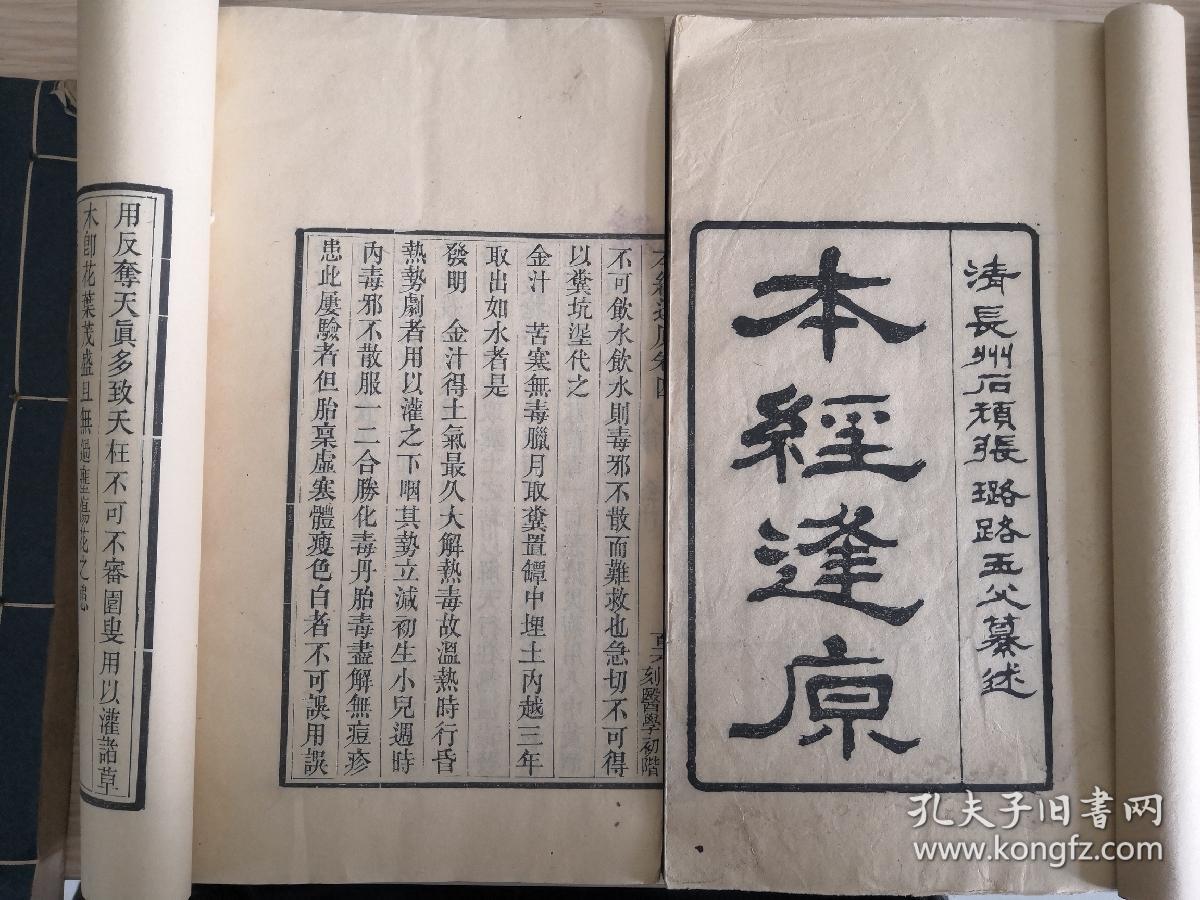 清長州石頑張璐路玉父纂述
本經逢原
不可飲水飲水則毒邪不散而難救也急切不可得
以糞坑埿代之
金汁　苦寒無毒臘月取糞置罈中埋土內越三年
取出如水者是
發明　金汁得土氣最久大解熱毒故溫熱時行昏
熱勢劇者用以灌之下咽其勢立減初生小兒遇時
內毒邪不散服一二合勝化毒丹胎毒盡解無痘疹
患此屢驗者但胎稟虛寒體瘦色白者不可誤用誤
本經逢原卷四
刻醫學初階
用反奪天眞多致夭枉不可不審圊叟用以灌諸草
木卽花葉茂盛且無
花之患
孔夫子旧书网
www.kongfz.com